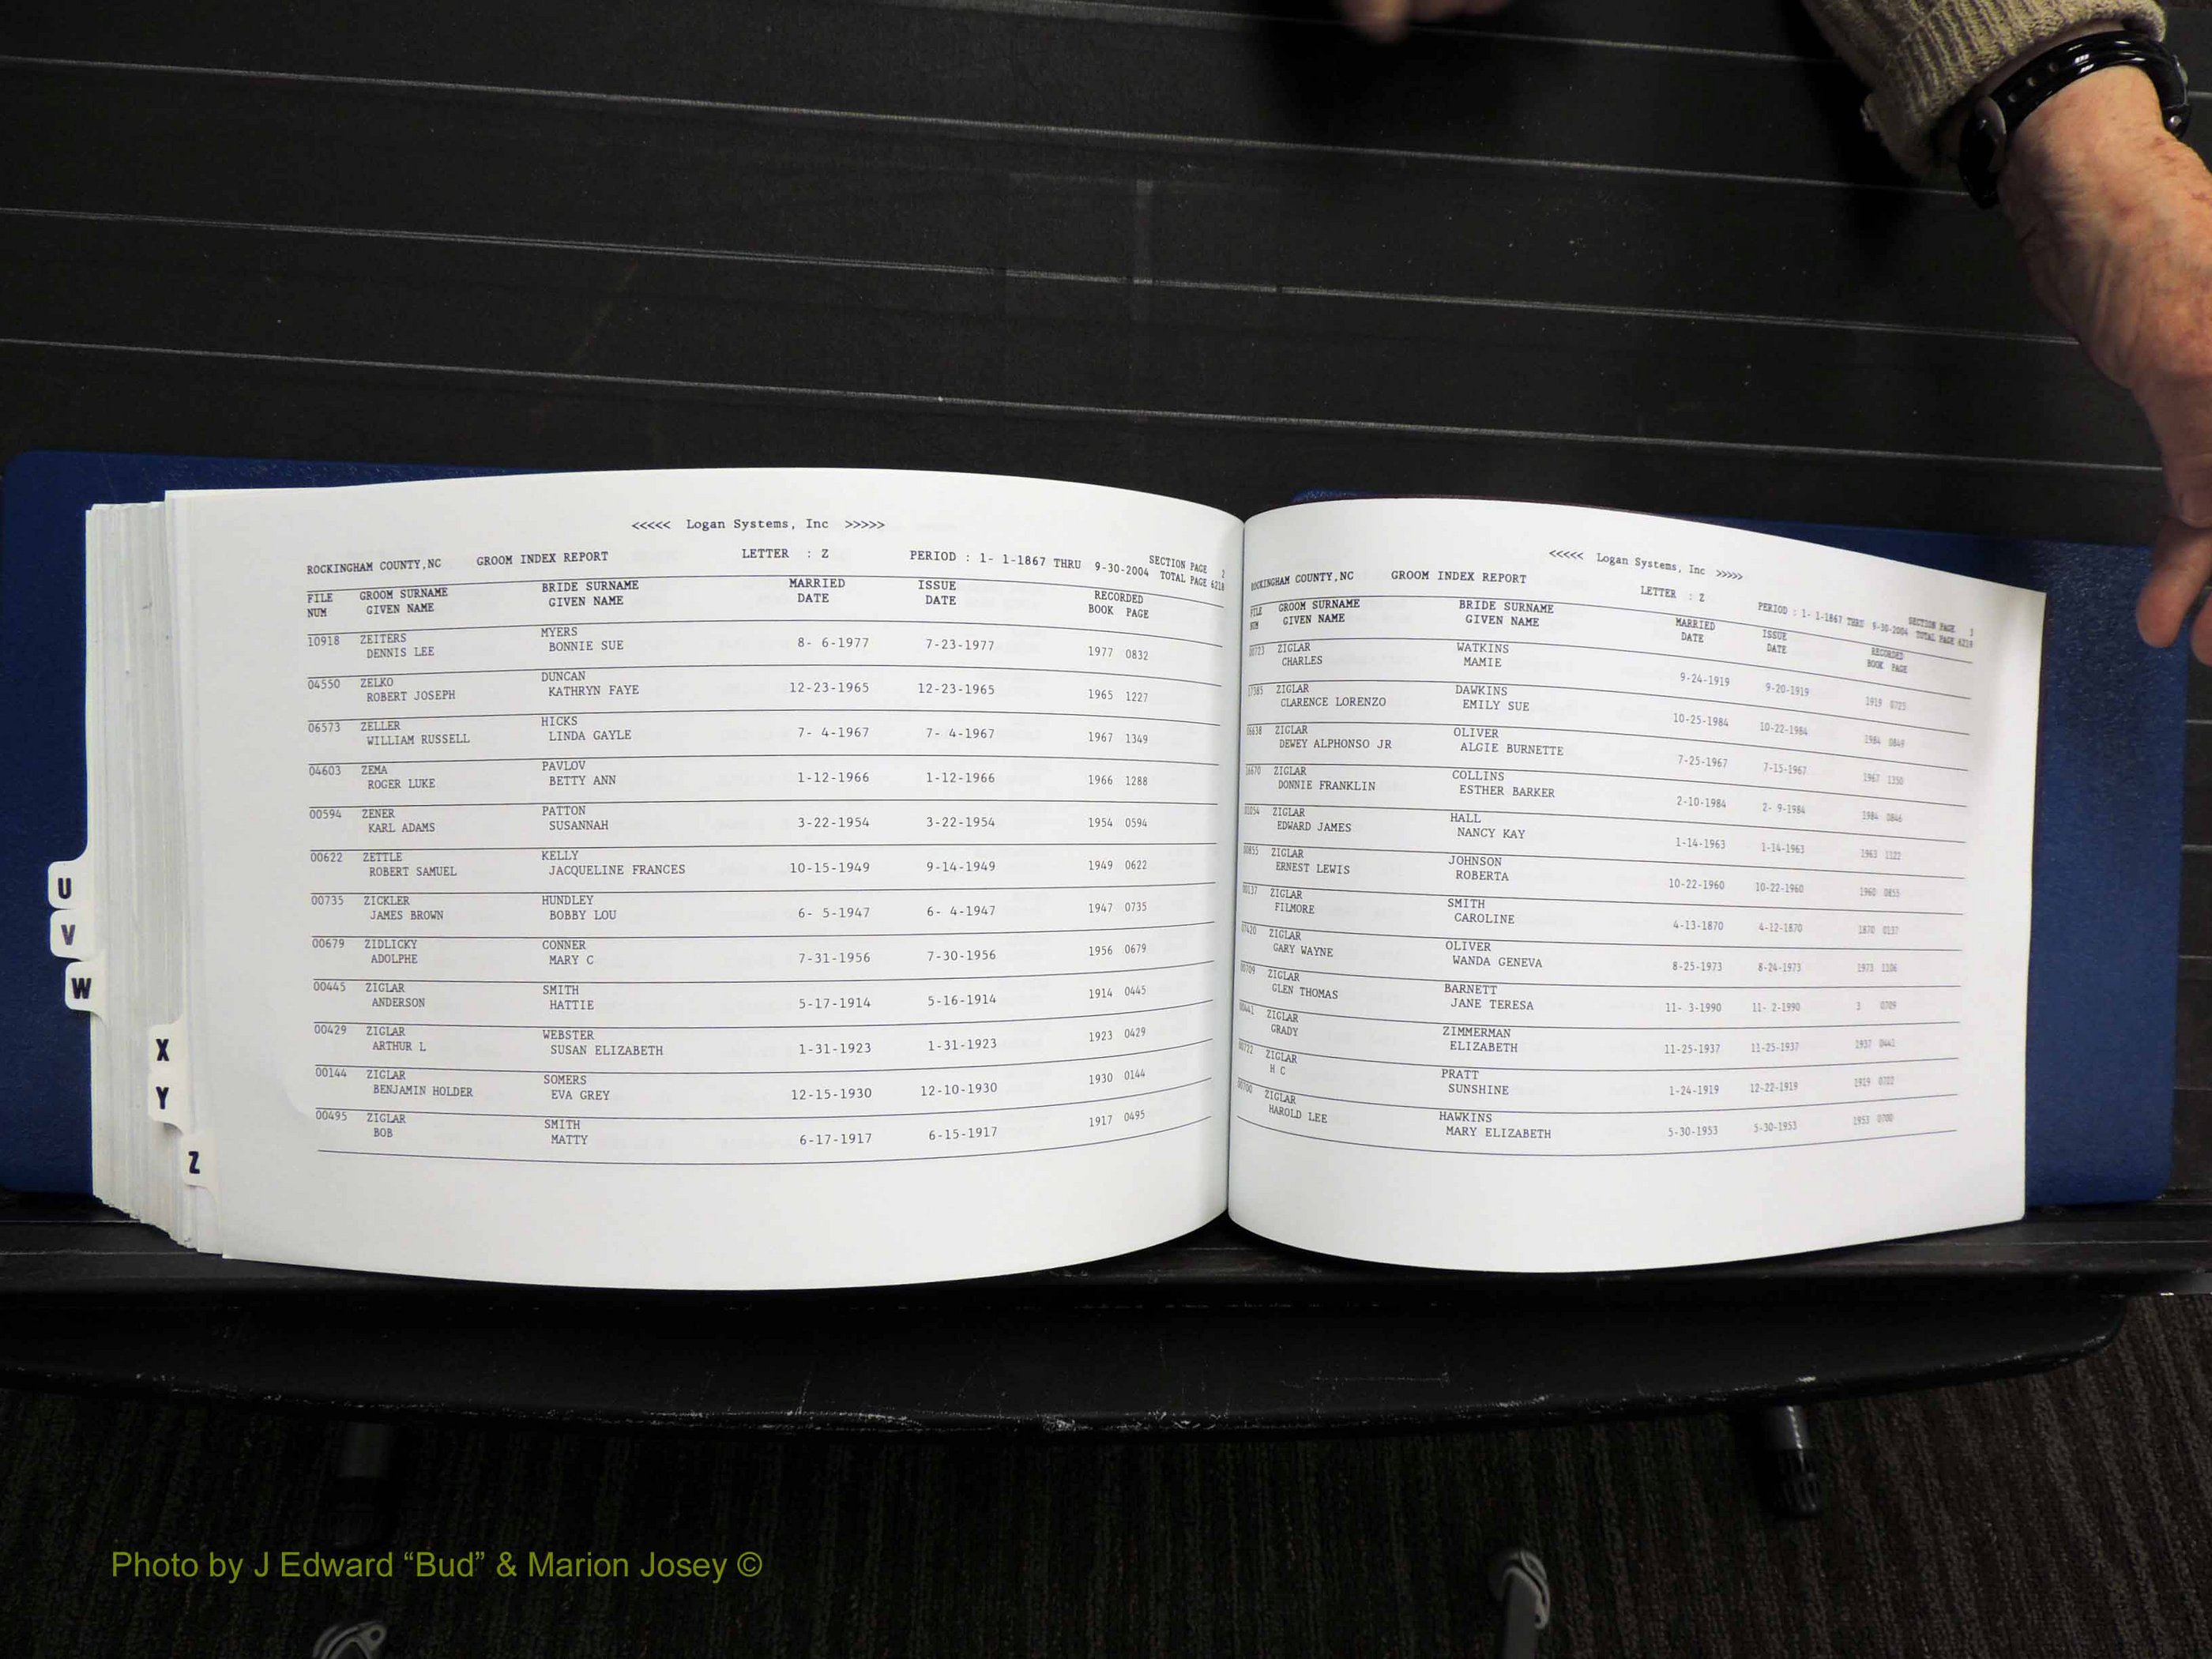 <<<<< Logan Systems, Inc >>>>>
ROCKINGHAM COUNTY,NC GROOM INDEX REPORT LETTER : Z PERIOD : 1- 1-1867 THRU 9-30-2004 SECTION PAGE 2
TOTAL PAGE 6218
FILE GROOM SURNAME BRIDE SURNAME MARRIED ISSUE RECORDED
NUM GIVEN NAME GIVEN NAME DATE DATE BOOK PAGE
10918 ZEITERS MYERS 8- 6-1977 7-23-1977 1977 0832
DENNIS LEE BONNIE SUE
04550 ZELKO DUNCAN 12-23-1965 12-23-1965 1965 1227
ROBERT JOSEPH KATHRYN FAYE
06573 ZELLER HICKS 7- 4-1967 7- 4-1967 1967 1349
WILLIAM RUSSELL LINDA GAYLE
04603 ZEMA PAVLOV 1-12-1966 1-12-1966 1966 1288
ROGER LUKE BETTY ANN
00594 ZENER PATTON 3-22-1954 3-22-1954 1954 0594
KARL ADAMS SUSANNAH
00622 ZETTLE KELLY 10-15-1949 9-14-1949 1949 0622
ROBERT SAMUEL JACQUELINE FRANCES
00735 ZICKLER HUNDLEY 6- 5-1947 6- 4-1947 1947 0735
JAMES BROWN BOBBY LOU
00679 ZIDLICKY CONNER 7-31-1956 7-30-1956 1956 0679
ADOLPHE MARY C
00445 ZIGLAR SMITH 5-17-1914 5-16-1914 1914 0445
ANDERSON HATTIE
00429 ZIGLAR WEBSTER 1-31-1923 1-31-1923 1923 0429
ARTHUR L SUSAN ELIZABETH
00144 ZIGLAR SOMERS 12-15-1930 12-10-1930 1930 0144
BENJAMIN HOLDER EVA GREY
00495 ZIGLAR SMITH 6-17-1917 6-15-1917 1917 0495
BOB MATTY
U
V
W
X
Y
Z
<<<<< Logan Systems, Inc >>>>>
ROCKINGHAM COUNTY,NC GROOM INDEX REPORT LETTER : Z PERIOD : 1- 1-1867 THRU 9-30-2004 SECTION PAGE 3
TOTAL PAGE 6219
FILE GROOM SURNAME BRIDE SURNAME MARRIED ISSUE RECORDED
NUM GIVEN NAME GIVEN NAME DATE DATE BOOK PAGE
ZIGLAR WATKINS 9-24-1919 9-20-1919 1919
CHARLES MAMIE
ZIGLAR DAWKINS 10-25-1984 10-22-1984 1984 0849
CLARENCE LORENZO EMILY SUE
06638 ZIGLAR OLIVER 7-25-1967 7-15-1967 1967 1350
DEWEY ALPHONSO JR ALGIE BURNETTE
ZIGLAR COLLINS 2-10-1984 2- 9-1984 1984 0846
DONNIE FRANKLIN ESTHER BARKER
ZIGLAR HALL 1-14-1963 1-14-1963 1963 1122
EDWARD JAMES NANCY KAY
00855 ZIGLAR JOHNSON 10-22-1960 10-22-1960 1960 0855
ERNEST LEWIS ROBERTA
00137 ZIGLAR SMITH 4-13-1870 4-12-1870 1870 0137
FILMORE CAROLINE
ZIGLAR OLIVER 8-25-1973 8-24-1973 1973 1106
GARY WAYNE WANDA GENEVA
00709 ZIGLAR BARNETT 11- 3-1990 11- 2-1990 3 0709
GLEN THOMAS JANE TERESA
00441 ZIGLAR ZIMMERMAN 11-25-1937 11-25-1937 1937 0441
GRADY ELIZABETH
00722 ZIGLAR PRATT 1-24-1919 12-22-1919 1919 0722
H C SUNSHINE
00700 ZIGLAR HAWKINS 5-30-1953 5-30-1953 1953 0700
HAROLD LEE MARY ELIZABETH
Photo by J Edward “Bud” & Marion Josey ©